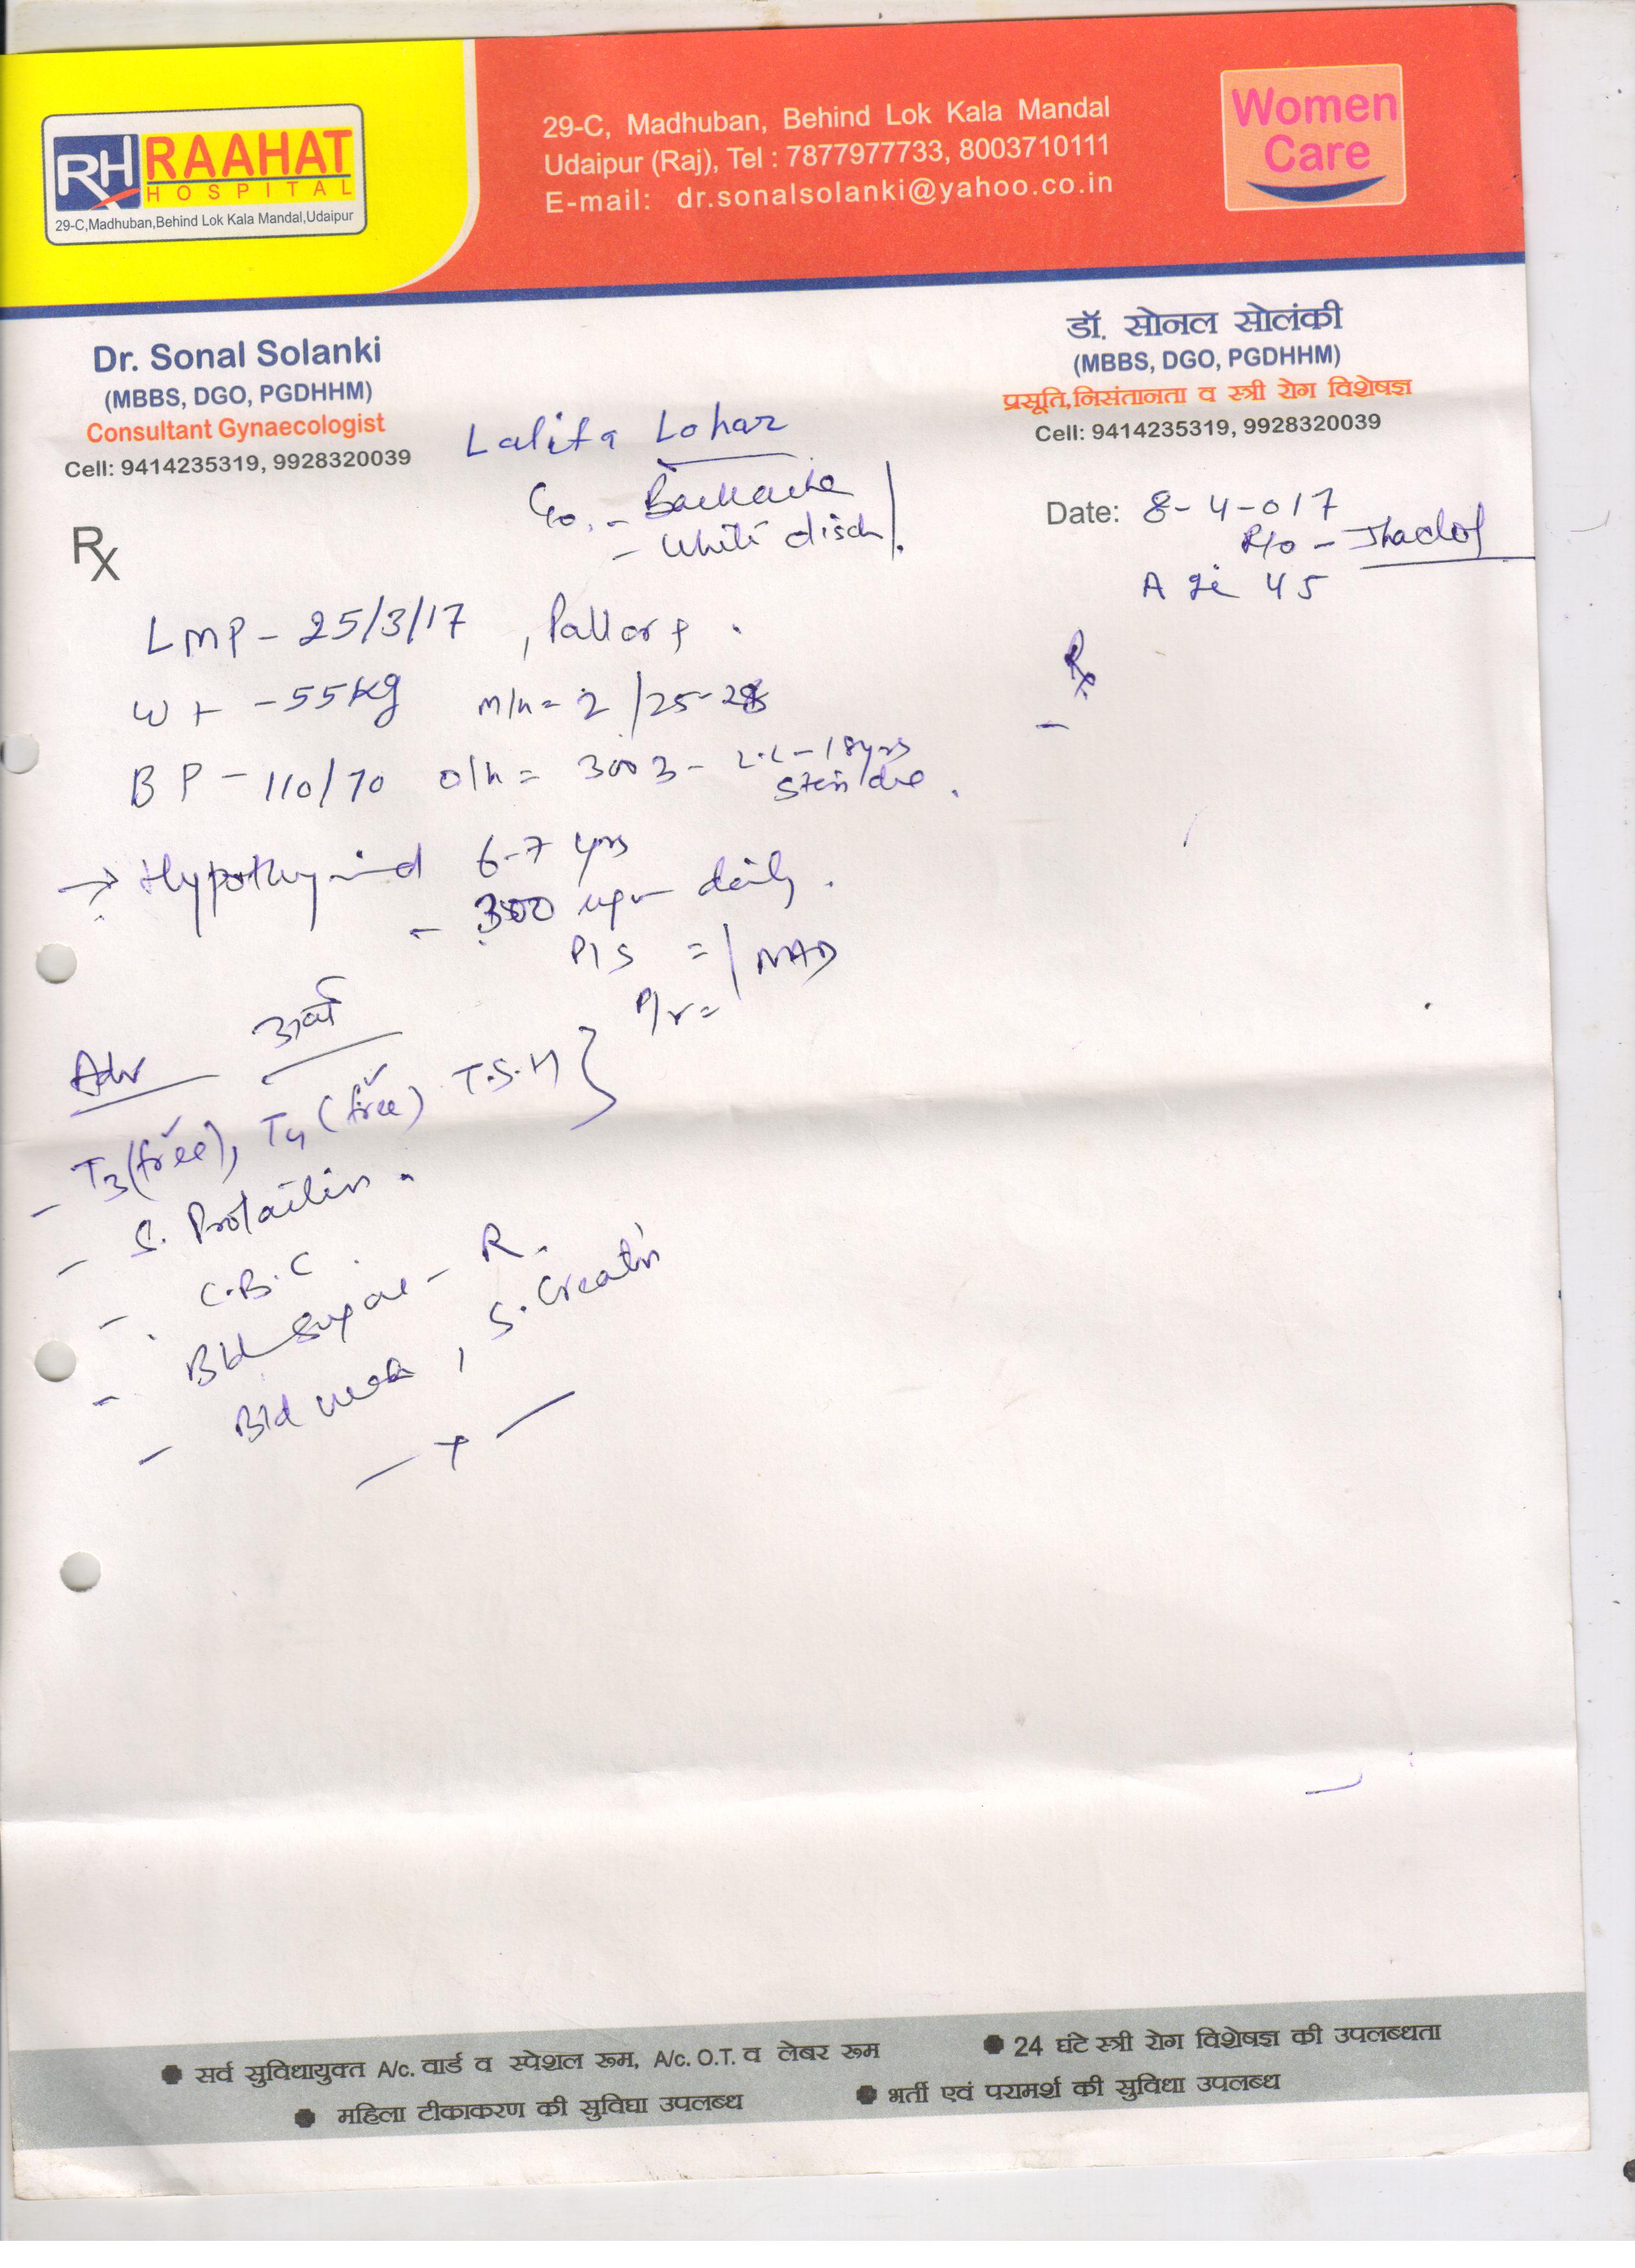 RH RAAHAT
HOSPITAL
29-C,Madhuban,Behind Lok Kala Mandal,Udaipur
29-C, Madhuban, Behind Lok Kala Mandal
Udaipur (Raj), Tel : 7877977733, 8003710111
E-mail: dr.sonalsolanki@yahoo.co.in
Women
Care
Dr. Sonal Solanki
(MBBS, DGO, PGDHHM)
Consultant Gynaecologist
Cell: 9414235319, 9928320039
डॉ. सोनल सोलंकी
(MBBS, DGO, PGDHHM)
प्रसूति,निसंतानता व स्त्री रोग विशेषज्ञ
Cell: 9414235319, 9928320039
Lalita Lohar
C/o. - Backache
- White disch
Date: 8-4-017
R/o - Jhadol
Age 45
Rx
Rx
LMP - 25/3/17 , Pallor +
Wt - 55kg m/h = 2/25-28
BP - 110/70 o/h = 3 - L.C - 18yrs
→ Hypothyroid 6-7 yrs
- daily.
P/S = NAD
P/v =
Adv
- T3 (free), T4 (free) T.S.H
- S. Prolactin.
- C.B.C
- Bld Sugar - R.
- Bld urea, S. Creatin
सर्व सुविधायुक्त A/c. वार्ड व स्पेशल रूम, A/c. O.T. व लेबर रूम
24 घंटे स्त्री रोग विशेषज्ञ की उपलब्धता
महिला टीकाकरण की सुविधा उपलब्ध
भर्ती एवं परामर्श की सुविधा उपलब्ध